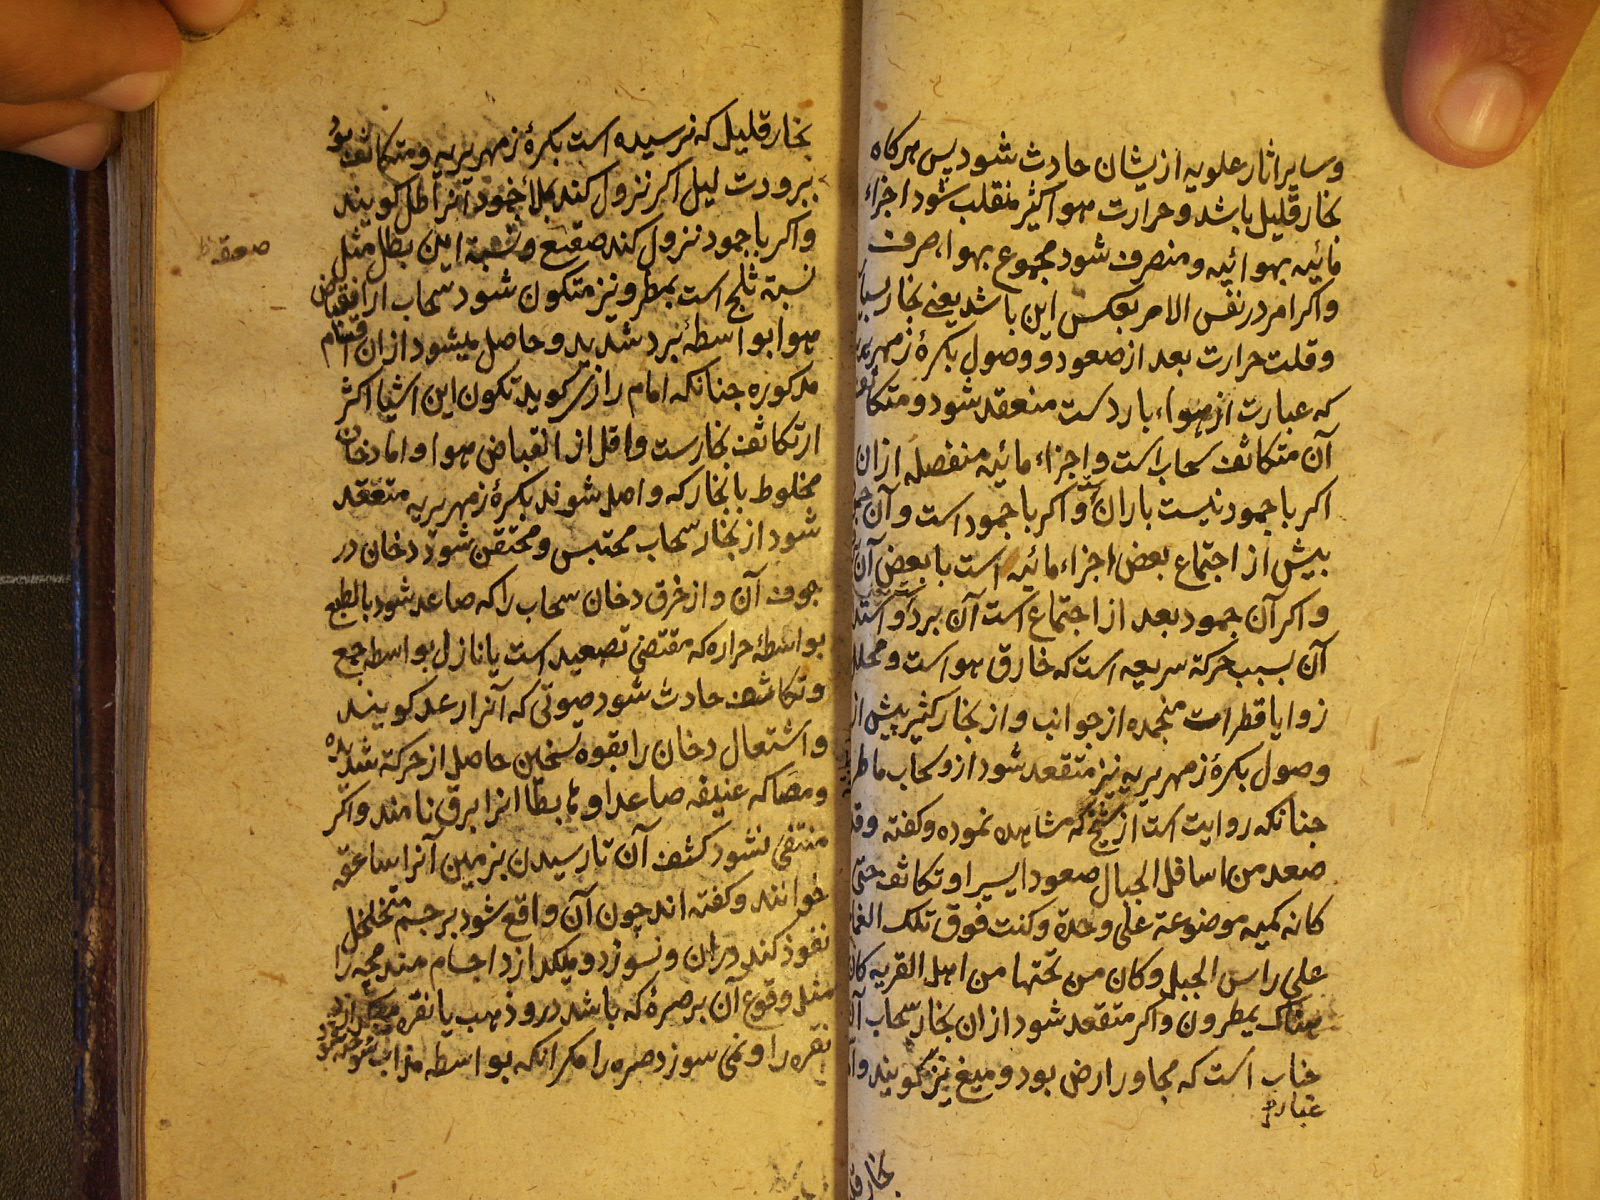 وسایر اثار علویه ازیشان حادث شود پس هرکاه
بخار قلیل باشد و حرارت هوا کثیر منقلب شود اجزاء
مائیه بهوائیه و منصرف شود مجموع بهواء صرف
واکر امر در نفس الامر بعکس این باشد یعنے بخار بسیا
وقلت حرارت بعد از صعود و وصول بکرۀ زمهریر
که عبارت از هواء باردست منعقد شود و متکاثف
آن متکاثف سحاب است و اجزاء مائیه منفصله ازان
اکر باجمود نیست باران و اکر باجمود است و آن
بیش از اجتماع بعض اجزاء مائیه است با بعض آن
واکر آن جمود بعد از اجتماع است آن برد و
آن بسبب حرکة سریعه است که خارق هواست و
زوایا قطرات منجمده از جوانب و از بخار کثیر بیش از
وصول بکرۀ زمهریریه نیز متقعد شود ازو سحاب ماطر
جنانکه روایت است از شیخ که مشاهده نموده و کفته وقد
صعد من اسافل الجبال صعودا یسیرا و تکاثف حتی
کانه کمیه موضوعة علی وحدة وکنت فوق تلک الغما
علی راس الجبل وکان من تحتها من اهل القریه کان
هناک یمطرون و اکر متقعد شود ازان بخار سحاب آن
ضباب است که مجاور ارض بود و میغ نیز کویند و
غبار
بخار
بخار قلیل که نرسیده است بکرۀ زمهریریه و متکاثف بود
ببرودت لیل اکر نزول کند بلا جمود آنرا طل کویند
واکر باجمود نزول کند صقیع و نسبة این بطل مثل
صعقه
نسبة ثلج است بمطر و نیز متکون شود سحاب از انقباض
هوا بواسطۀ برد شدید و حاصل میشود ازان اقسام
مذکوره جنانکه امام رازی کوید تکون این اشیا اکثر
از تکاثف بخارست و اقل از انقباض هوا و اما دخان
مخلوط با بخار که واصل شوند بکرۀ زمهریریه متقعد
شود از بخار سحاب محتبس و محتقن شود دخان در
جوف آن و از خرق دخان سحاب را که صاعد شود بالطبع
بواسطۀ حراره که مقتضی تصعید است یا نازل بواسطه جمع
وتکاثف حادث شود صوتی که آنرا رعد کویند
واشتعال دخان را بقوه تسخین حاصل از حرکة شدیده
ومصاکه عنیفه صاعدا و بطا انرا برق نامند و اکر
منتفی نشود کشف آن تا رسیدن بزمین آنرا ساعقه
خوانند و کفته اند چون آن واقع شود بر جسم متخلخل
نفوذ کند دران و نسوزد و بکدازد اجسام مندمجه را
مثل وقوع آن بر صرۀ که باشد درو ذهب یا نقره
نقره را و نمی سوزد صره را مکر انکه بواسطه مذاب